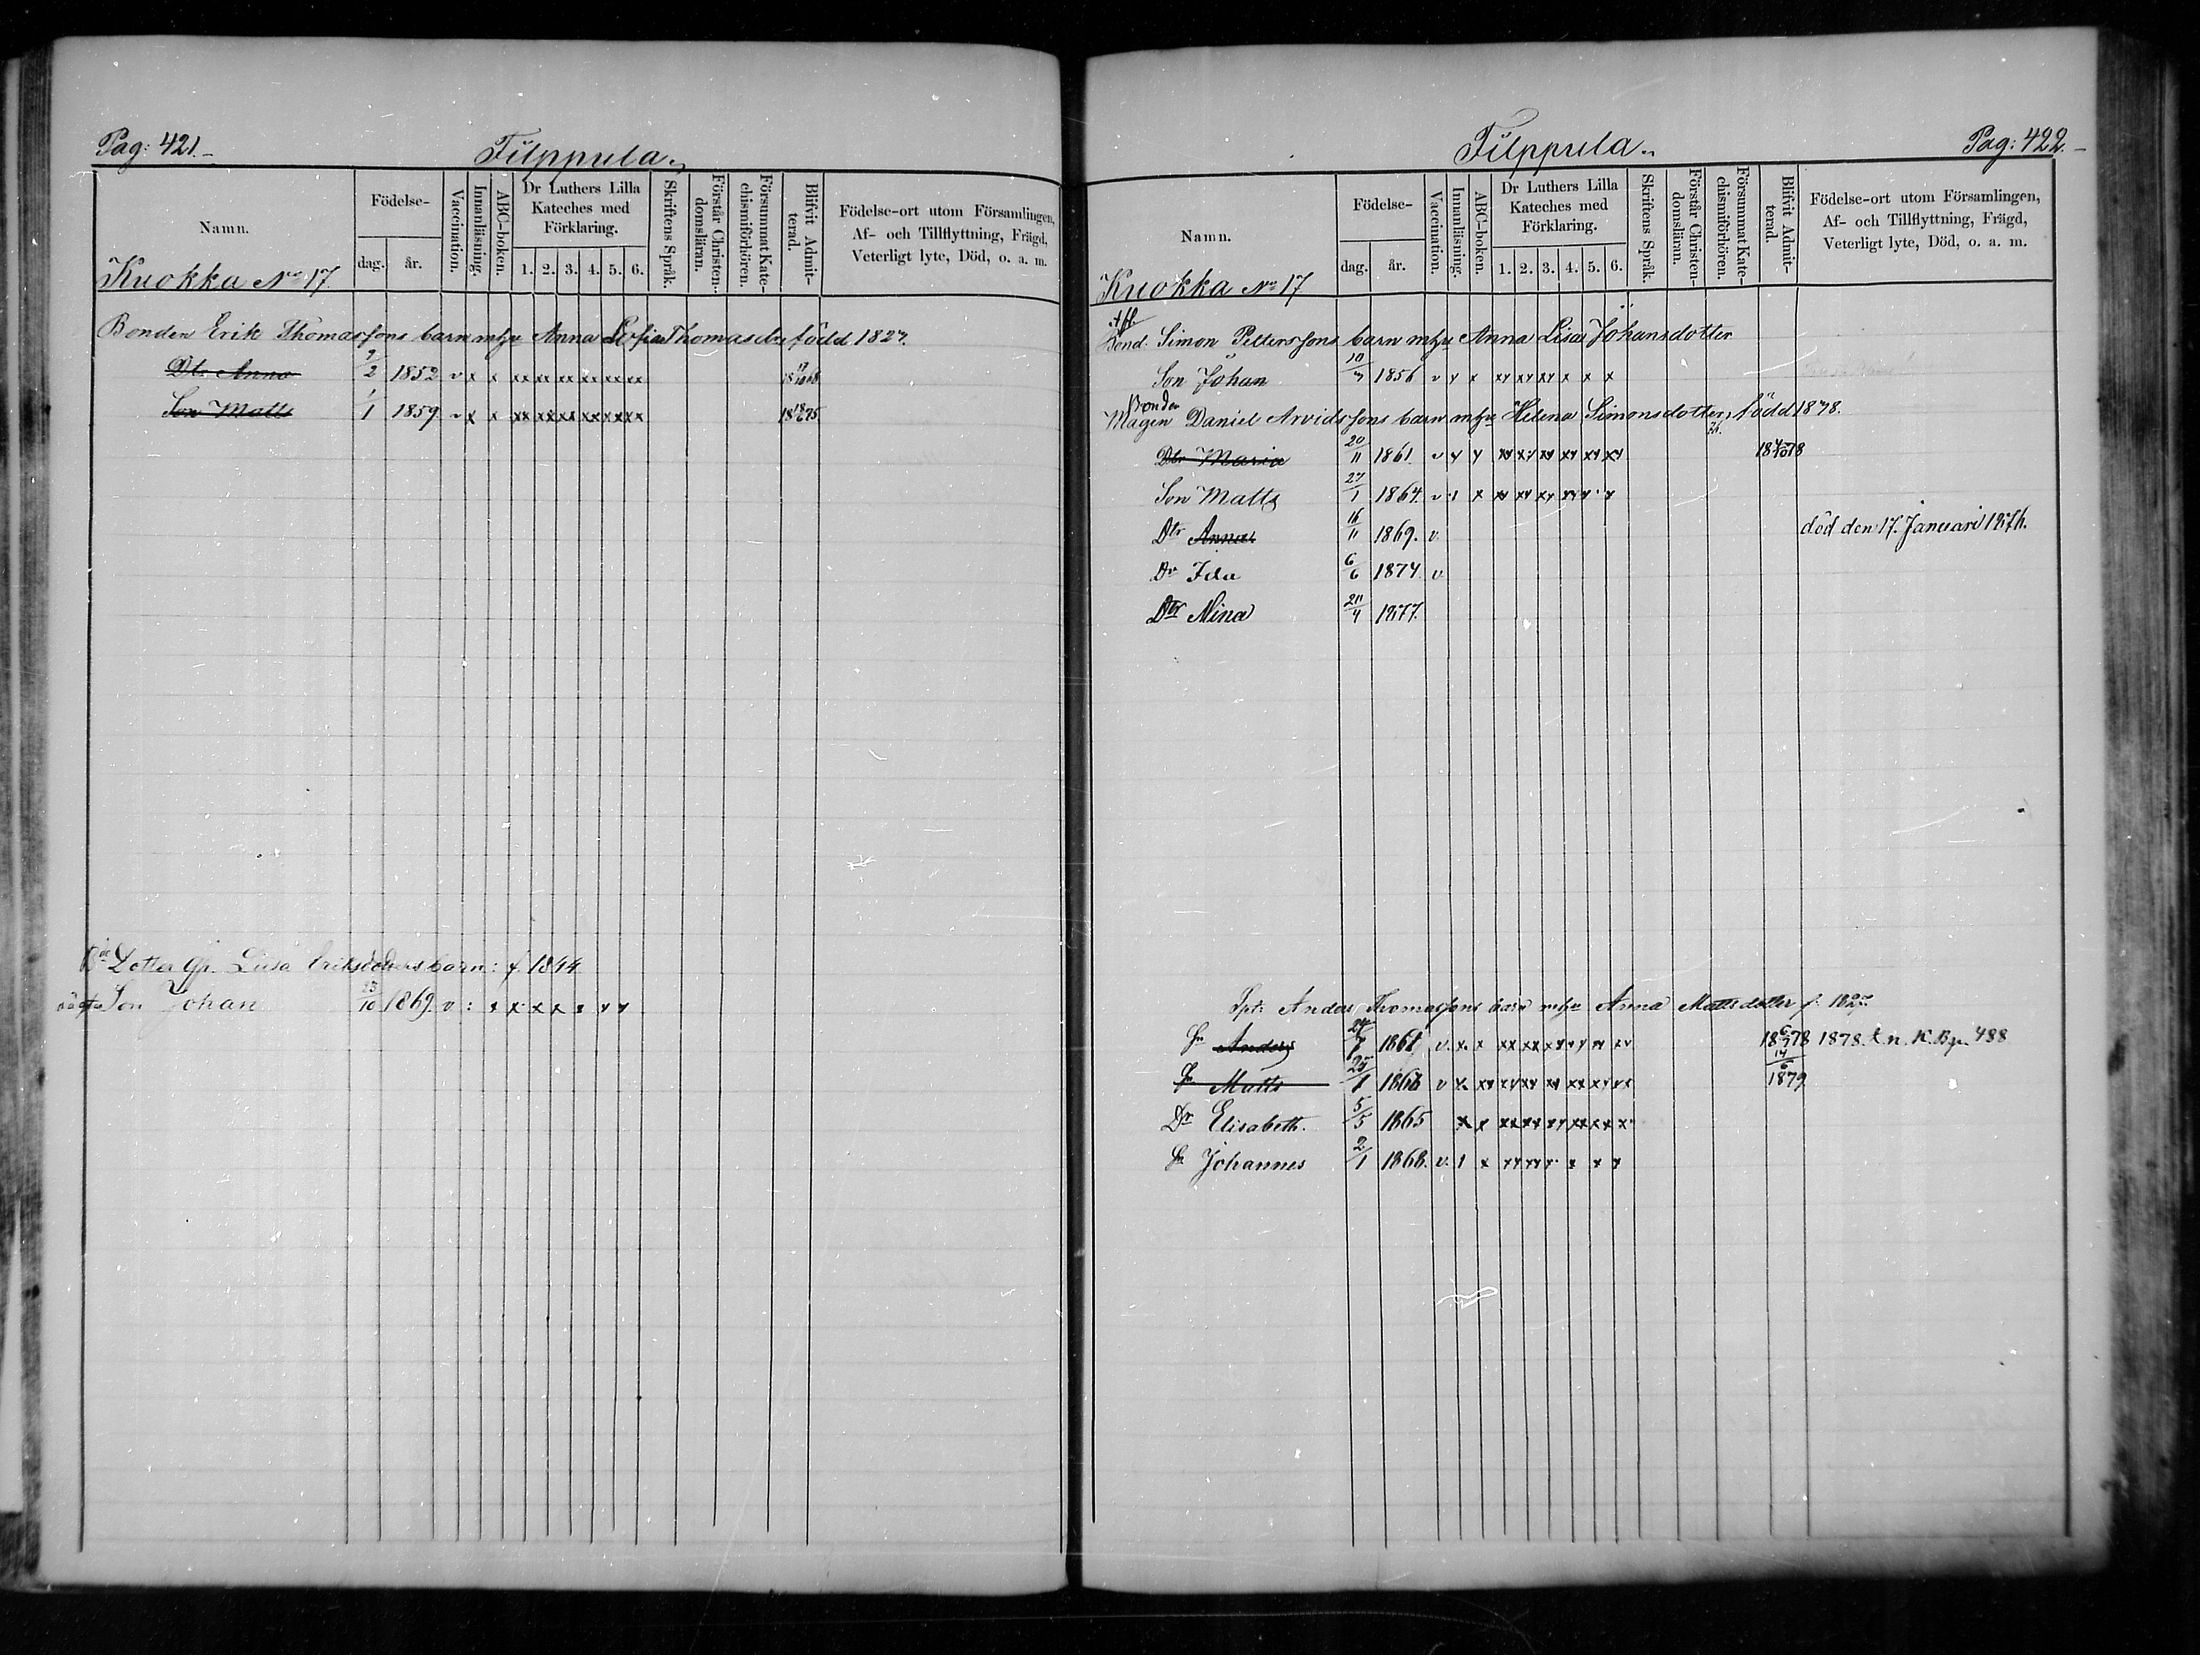 Pag: 421.
Filppula.
Namn.
Födelse-
dag.
år.
Vaccination.
Innanläsning.
ABC-boken.
Dr Luthers Lilla
Kateches med
Förklaring.
1. 2. 3. 4. 5. 6.
Skriftens Språk.
Förstår Christen-
domsläran.
Försummat Kate-
chismiförhören.
Blifvit Admit-
terad.
Födelse-ort utom Församlingen,
Af- och Tillflyttning, Frägd,
Veterligt lyte, Död, o. a. m.
Kuokka No 17
Bonden Erik Thomassons barn mhu Anna Thomasdr född 1827.
Dtr Anna 1852 v x x xx xx xx xx xx xx
Son Matts 1/1 1859 v x x xx xx xx xx xx xx
Dotter Lisa barn: f. 1844
Son Johan 1869. v
Pag: 422.
Filppula.
Namn.
Födelse-
dag.
år.
Vaccination.
Innanläsning.
ABC-boken.
Dr Luthers Lilla
Kateches med
Förklaring.
1. 2. 3. 4. 5. 6.
Skriftens Språk.
Förstår Christen-
domsläran.
Försummat Kate-
chismiförhören.
Blifvit Admit-
terad.
Födelse-ort utom Församlingen,
Af- och Tillflyttning, Frägd,
Veterligt lyte, Död, o. a. m.
Kuokka No 17
Bond. Simon Petterssons barn mhu Anna Lisa Johansdotter
Son Johan 1856 v
Bonden
Mågen Daniel Arvidssons barn mhu Helena Simonsdotter, född
Dtr Maria 20/11 1861. v
Son Matts 27/1 1864. v
Dtr Anna 16/11 1869. v. död den 17. Januari 1876.
Dr Ida 6/6 1874. v
Dtr Mina 1877.
Anders Thomassons barn mhu Anna Mattsdotter f.
Sn Anders v. 1878 1878 488
Sn Matts v 1879
Dr Elisabeth. 5/5 1865
Sn Johannes 2/1 1868. v.